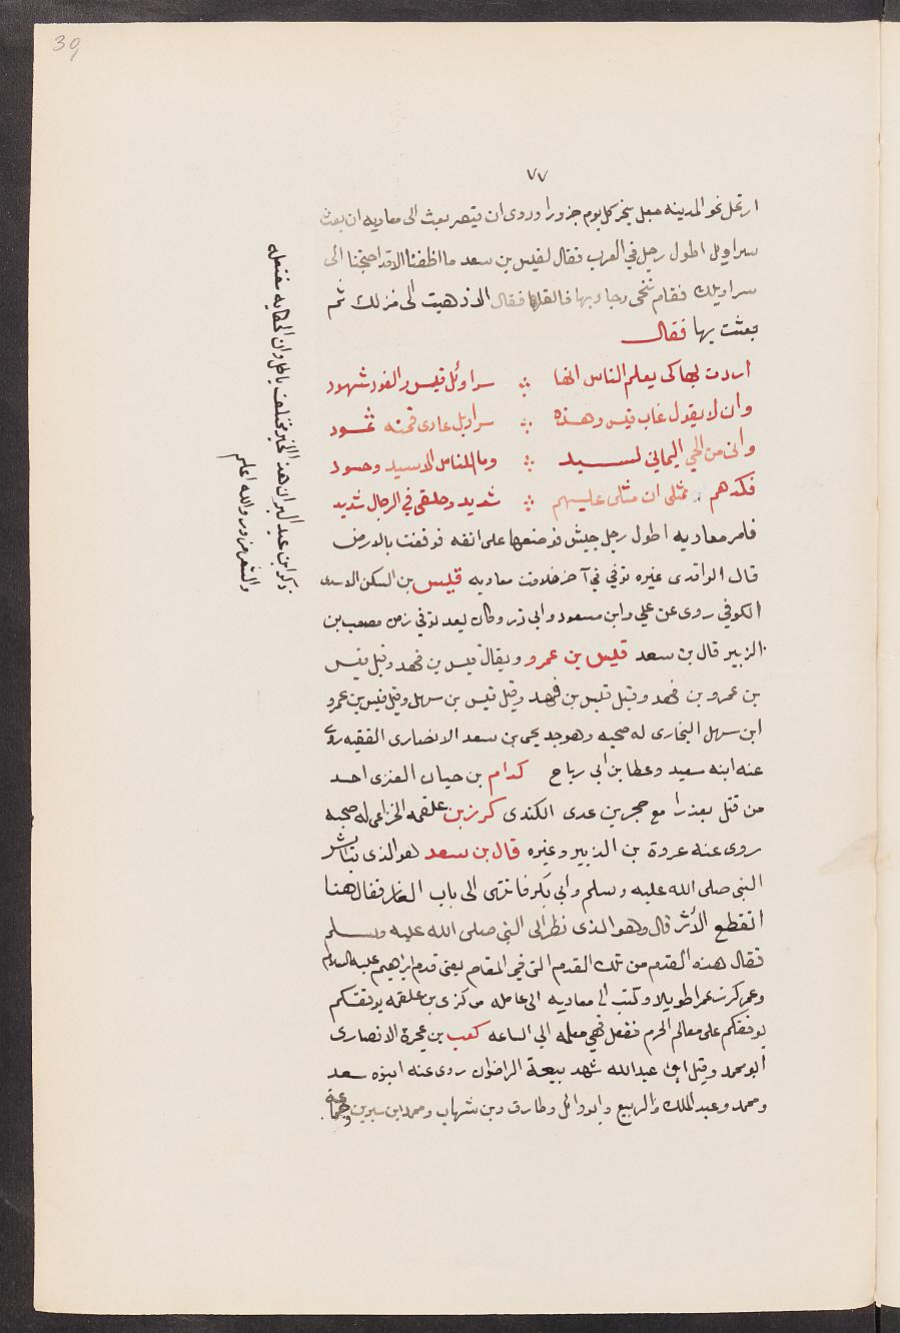 39
٧٧
ارتحل نحو المدينه جعل ينحر كل يوم جزورا وروى ان قيصر بعث الى معاويه ان بعث
سراويل اطول رجل في العرب فقال لقيس بن سعد ما اظفنا الا قد احتجنا الى
سراويلك فقام فتنحى وجاء بها فالقاها فقال الا ذهبت الى منزلك ثم
بعثت بها فقال
اردت بها كى يعلم الناس انها ∴ سراوئل قيس والوفود شهود
وان لا يقول غاب قيس وهذه ∴ سراويل عادى نمته ثمود
وانى من الحي اليماني لسيد ∴ وما الناس الا سيد ومسود
فكدهم بمثلى ان مثلى عليهم ∴ شديد وخلقى في الرجال شديد
فامر معاويه اطول رجل جيش فوضعها على انفه فوقفت بالارض
قال الواقدى غيره توفي في آخر خلافت معاويه قليس بن السكن الاسدى
الكوفي روى عن علي وابن مسعود وابى ذر وكان يعد توفي زمن مصعب بن
الزبير قال بن سعد قليس بن عمرو ويقال قيس بن فهد وقيل قيس
بن عمرو بن فهد وقيل قليس بن فهد وقيل قيس بن سهل وقيل قيس بن عمرو
ابن سهل النجارى له صحبه وهو جد يحيى بن سعد الانصارى الفقيه روى
عنه ابنه سعيد وعطا بن ابي رباح كدام بن حيان العنزى احد
من قتل بعذرا مع حجر بن عدى الكندى كرز بن علقمه الخزاعى له صحبه
روى عنه عروة بن الزبير وغيره قال بن سعد هو الذى
النبى صلى الله عليه وسلم وابى بكر فانتهى الى باب الغار فقال هنا
انقطع الأثر قال وهو الذى نظر الى النبي صلى الله عليه وسلم
فقال هذه القدم من تلك القدم التى في المقام يعنى قدم ابراهيم عليه السلام
وعمر كرز عمرا طويلا وكتب الى معاويه الى عامله كرز بن علقمه يوقفكم
يوقفكم على معالم الحرم ففعل فهي معلمه الى الساعه كعب بن عجرة الانصارى
ابو محمد وقيل ابو عبدالله شهد بيعة الرضوان روى عنه ابنوه سعد
ومحمد وعبد الملك والربيع وابو وائل وطارق وبن شهاب ومحمد ابن سيرين وجماعة
ذكر ابن عبد البر ان هذا الخبر مختلف باطل وان الحكايه مفتعله
والشعر مزور والله اعلم